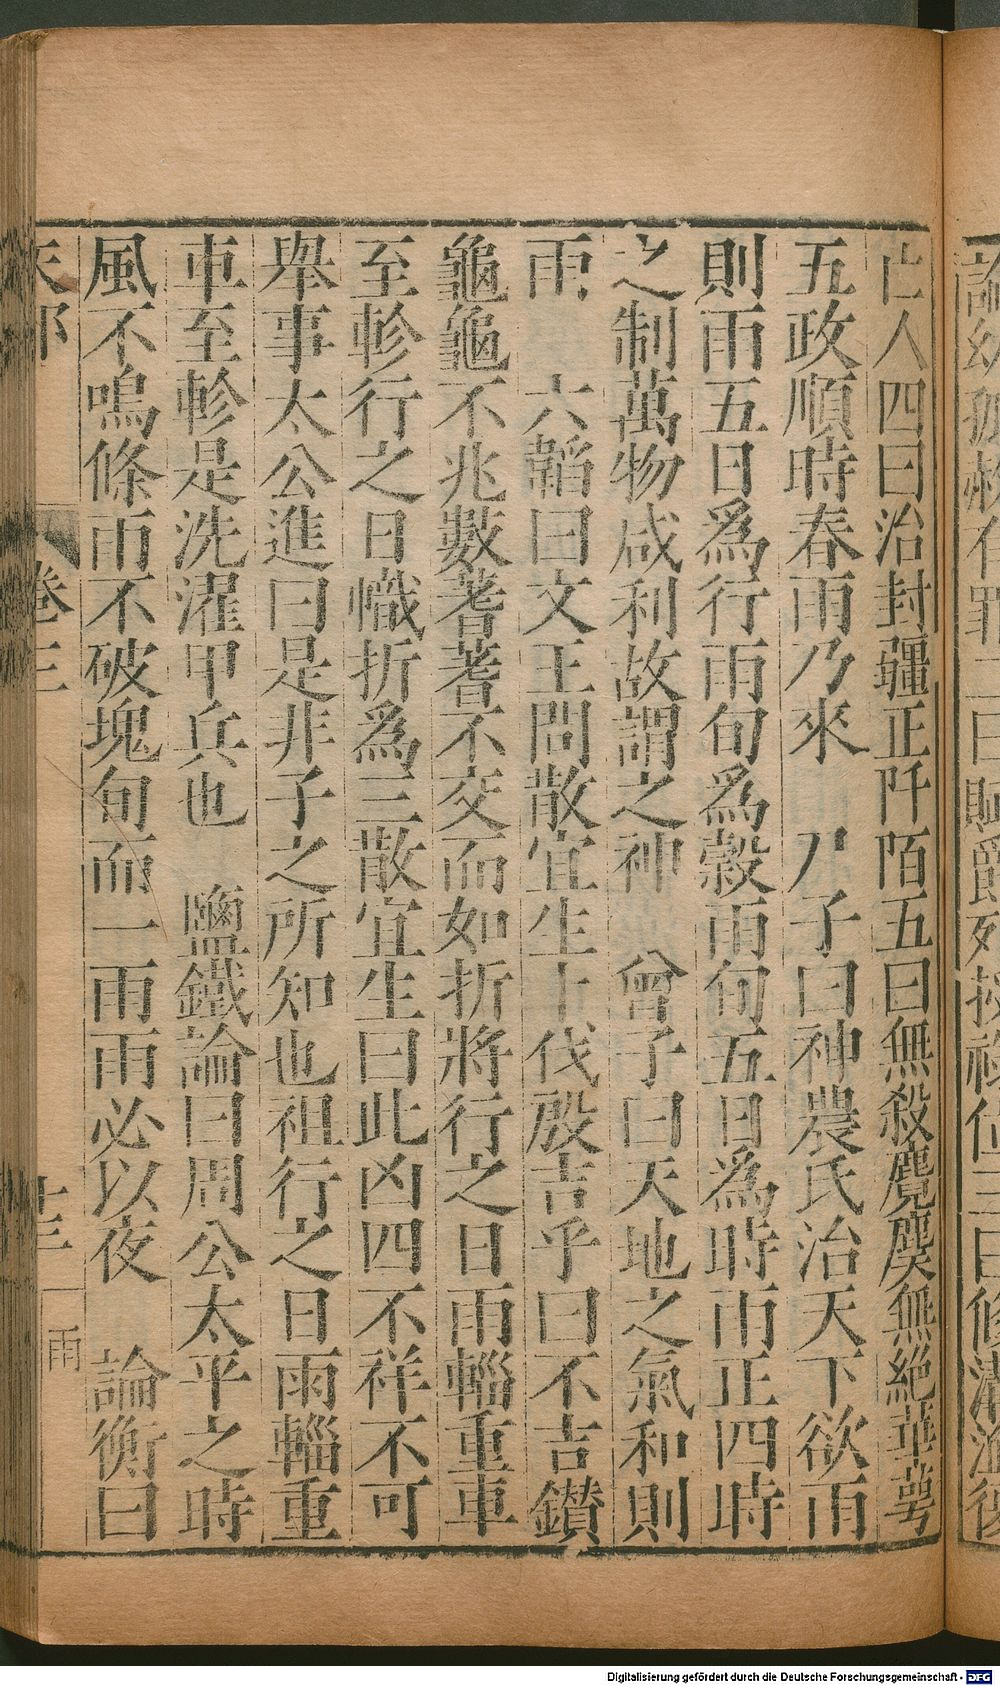 論幼孤赦有罪二曰賦爵列授祿位三曰修溝洫復
亡人四曰治封疆正阡陌五曰無殺麑麌無絕華萼
五政順時春雨乃來　尸子曰神農氏治天下欲雨
則雨五日爲行雨旬爲穀雨旬五日爲時雨正四時
之制萬物咸利故謂之神　曾子曰天地之氣和則
雨　六韜曰文王問散宜生卜伐殷吉乎曰不吉鑚
龜龜不兆數蓍蓍不交而如折將行之日雨輜重車
至軫行之日幟折爲三散宜生曰此凶四不祥不可
舉事太公進曰是非子之所知也祖行之日雨輜重
車至軫是洗濯甲兵也　鹽鐵論曰周公太平之時
風不鳴條雨不破塊旬而一雨雨必以夜　論衡曰
天部　卷三　十三　雨
Digitalisierung gefördert durch die Deutsche Forschungsgemeinschaft - DFG